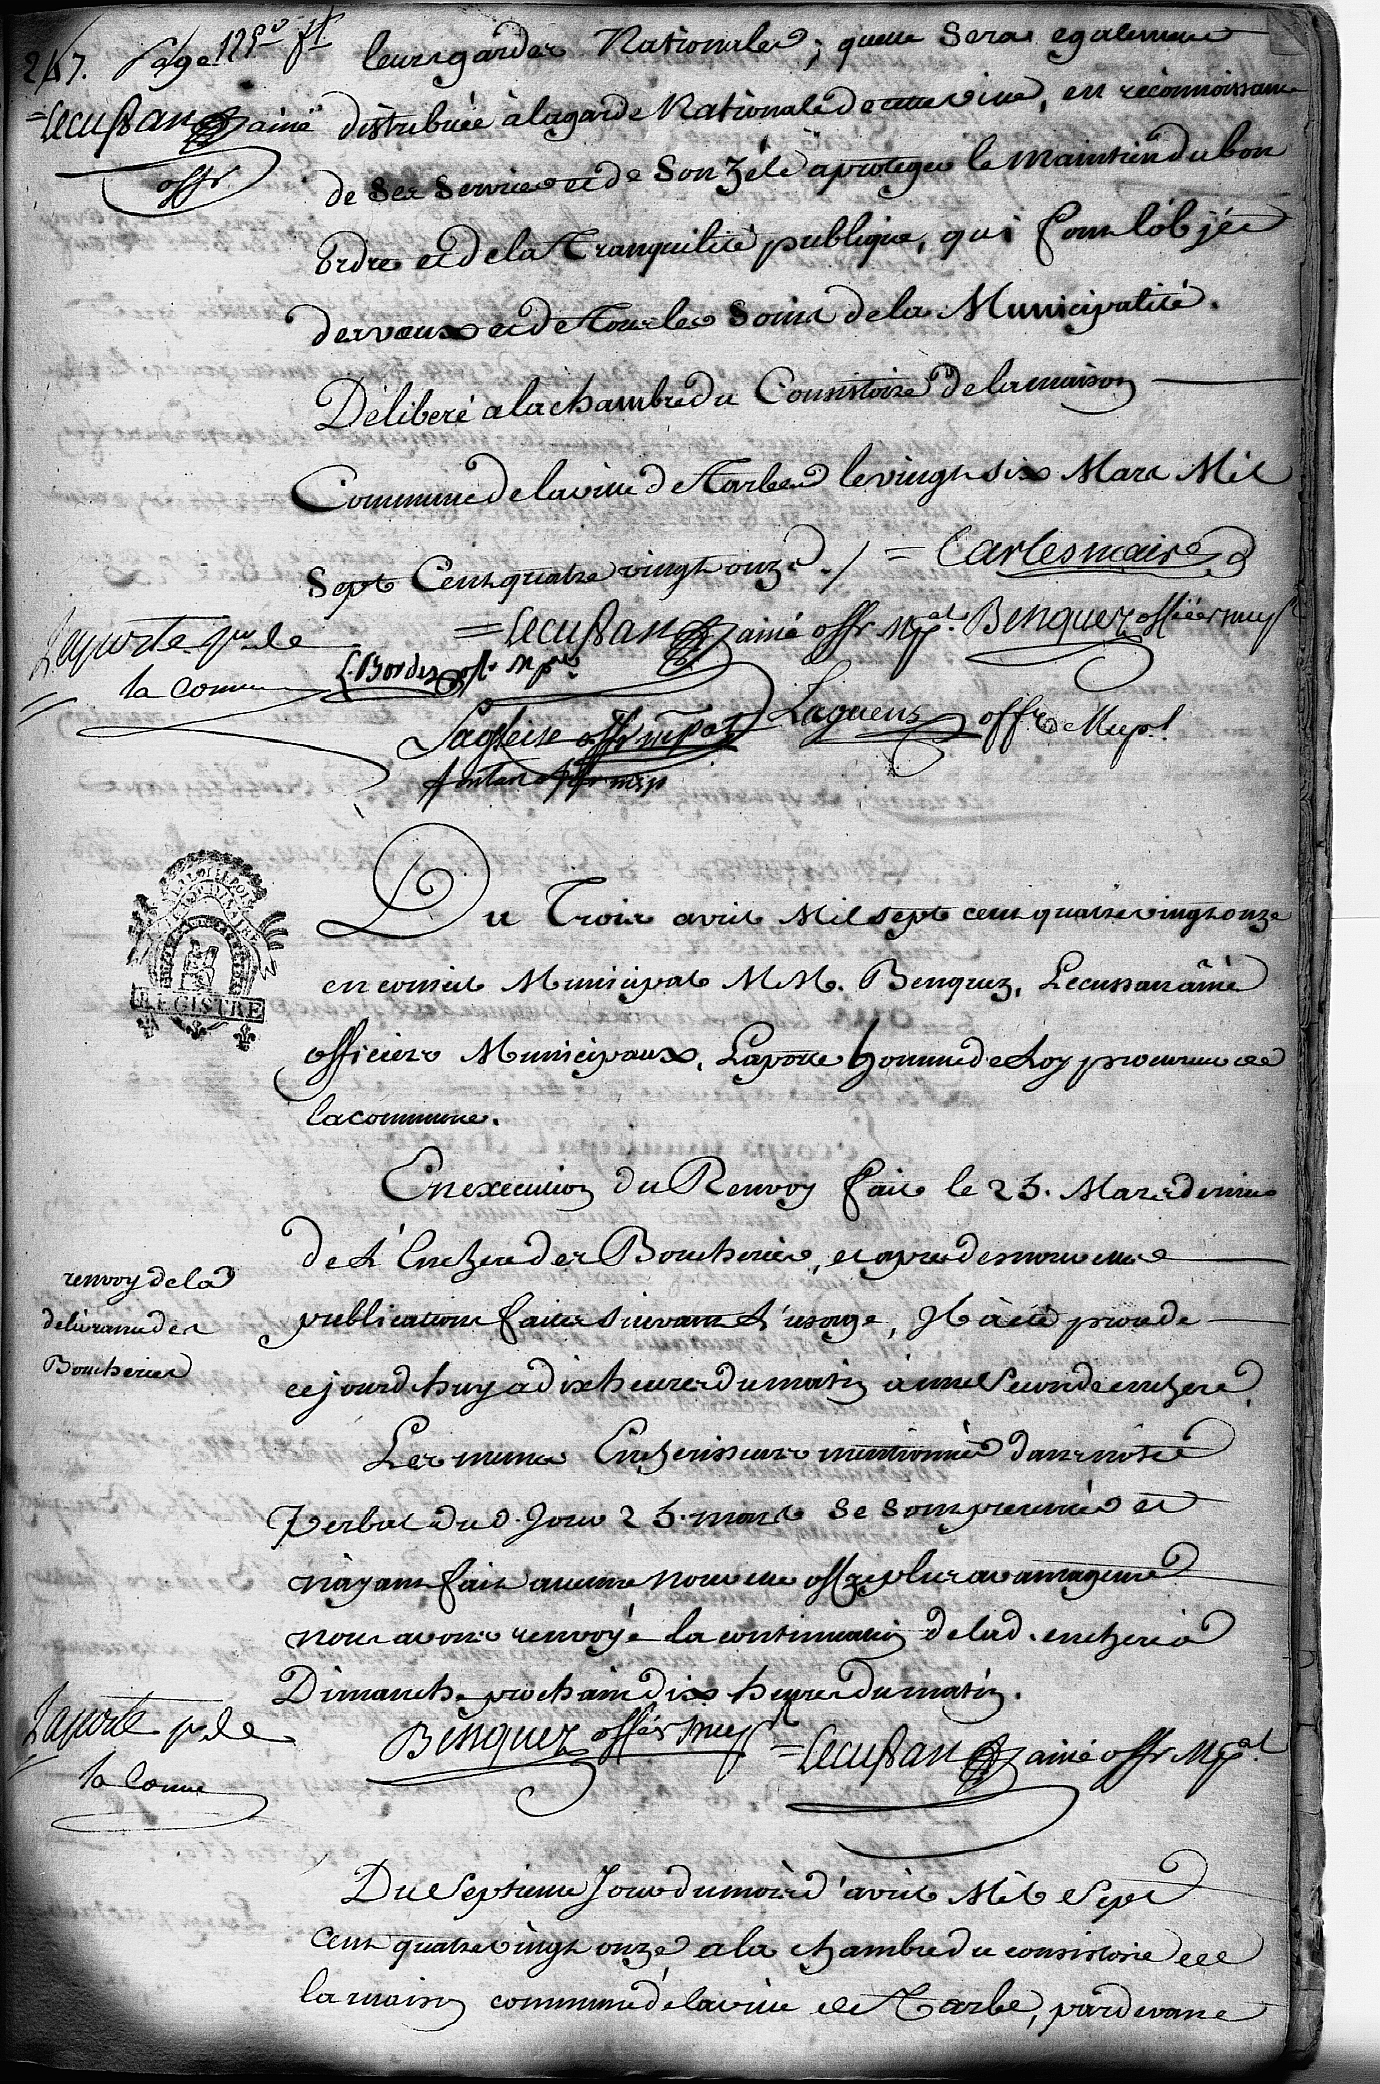 247. Page 125e ft
Lecussan ainé
offr.
leurs gardes Nationales; quelle Sera egalement
distribuée à la garde Nationale de cette ville, en réconnoissance
de Ses Services et de Son Zéle a proteger le maintien du bon
Ordre et de la Tranquilité publique, qui font l'objét
des vœux et de Tous les Soins de la Municipalité.
Délibéré a la chambre du Consistoire de la maison
Commune de la ville de Tarbes le vingt six Mars Mil
Sept Cent quatre vingt onze. / = Carles maire
Laporte pr. de
la Comune
= Lecussan ainé offr. Mpal. Benquez officiér mupl
L. Bordes offr mpal
Lagleise offr mpal Laguens offr Mupl.
fontan offr mup
REGISTRE
Du Trois avril Mil sept cent quatre vingt onze
en conseil Municipal M.M. Benquez, Lecussan âiné
officiers Municipaux, Laporte homme de Loy procureur de
la commune.
En execution du Renvoy fait le 25. Mars dernier
de L'Enchere des Boucheries, et apres des nouvelles
publications faites suivant L'usage, Il à été procedé
renvoy de la
delivrance des
Boucheries
cejourd'huy a dix heures du matin à une Seconde enchere,
Les memes Encherisseurs mentionnés dans nôtre
Verbal dud. Jour 25. mars Se sont presentés et
n'ayant fait aucune nouvelle offre plus avantageuse
nous avons renvoyé la continuation de lad. enchere à
Dimanche prochain dix heures du matin.
Laporte pr. de
la Comue
Benquez offér mupl
= Lecussan ainé offr Mpal
Du Septieme Jour du mois d'avril Mil Sept
Cent quatre vingt onze, a la chambre du consistoire de
la maison commune de la ville de Tarbe, pardevant